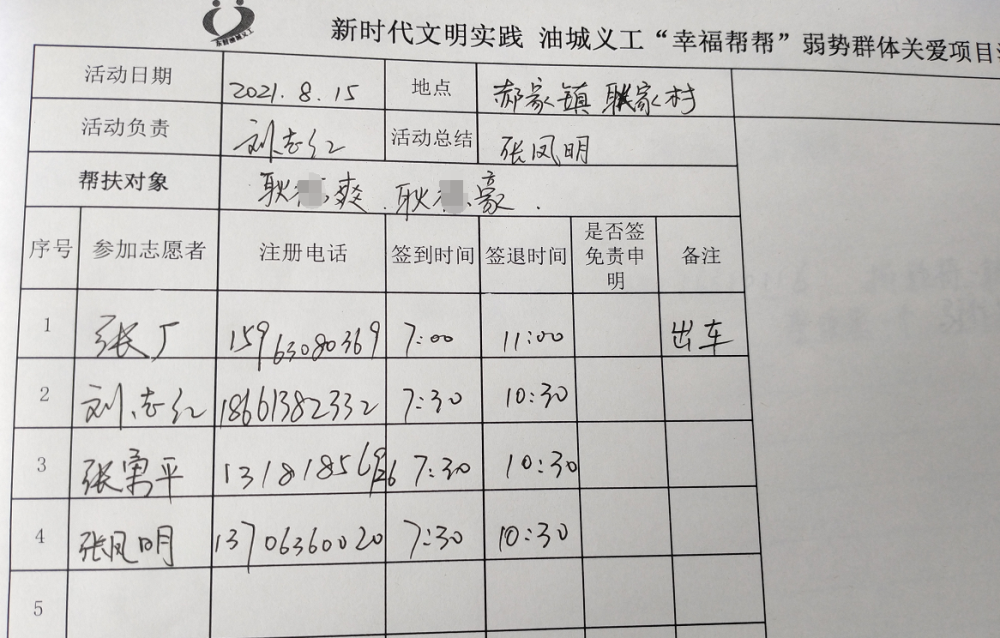 新时代文明实践 油城义工“幸福帮帮”弱势群体关爱项目
活动日期 2021.8.15 地点 郝家镇 耿家村
活动负责 刘志红 活动总结 张凤明
帮扶对象 耿 爽.耿 豪.
序号 参加志愿者 注册电话 签到时间 签退时间 是否签免责申明 备注
1 张广 15963080369 7:00 11:00 出车
2 刘志红 18661382332 7:30 10:30
3 张勇平 1318185 7:30 10:30
4 张凤明 13706360020 7:30 10:30
5